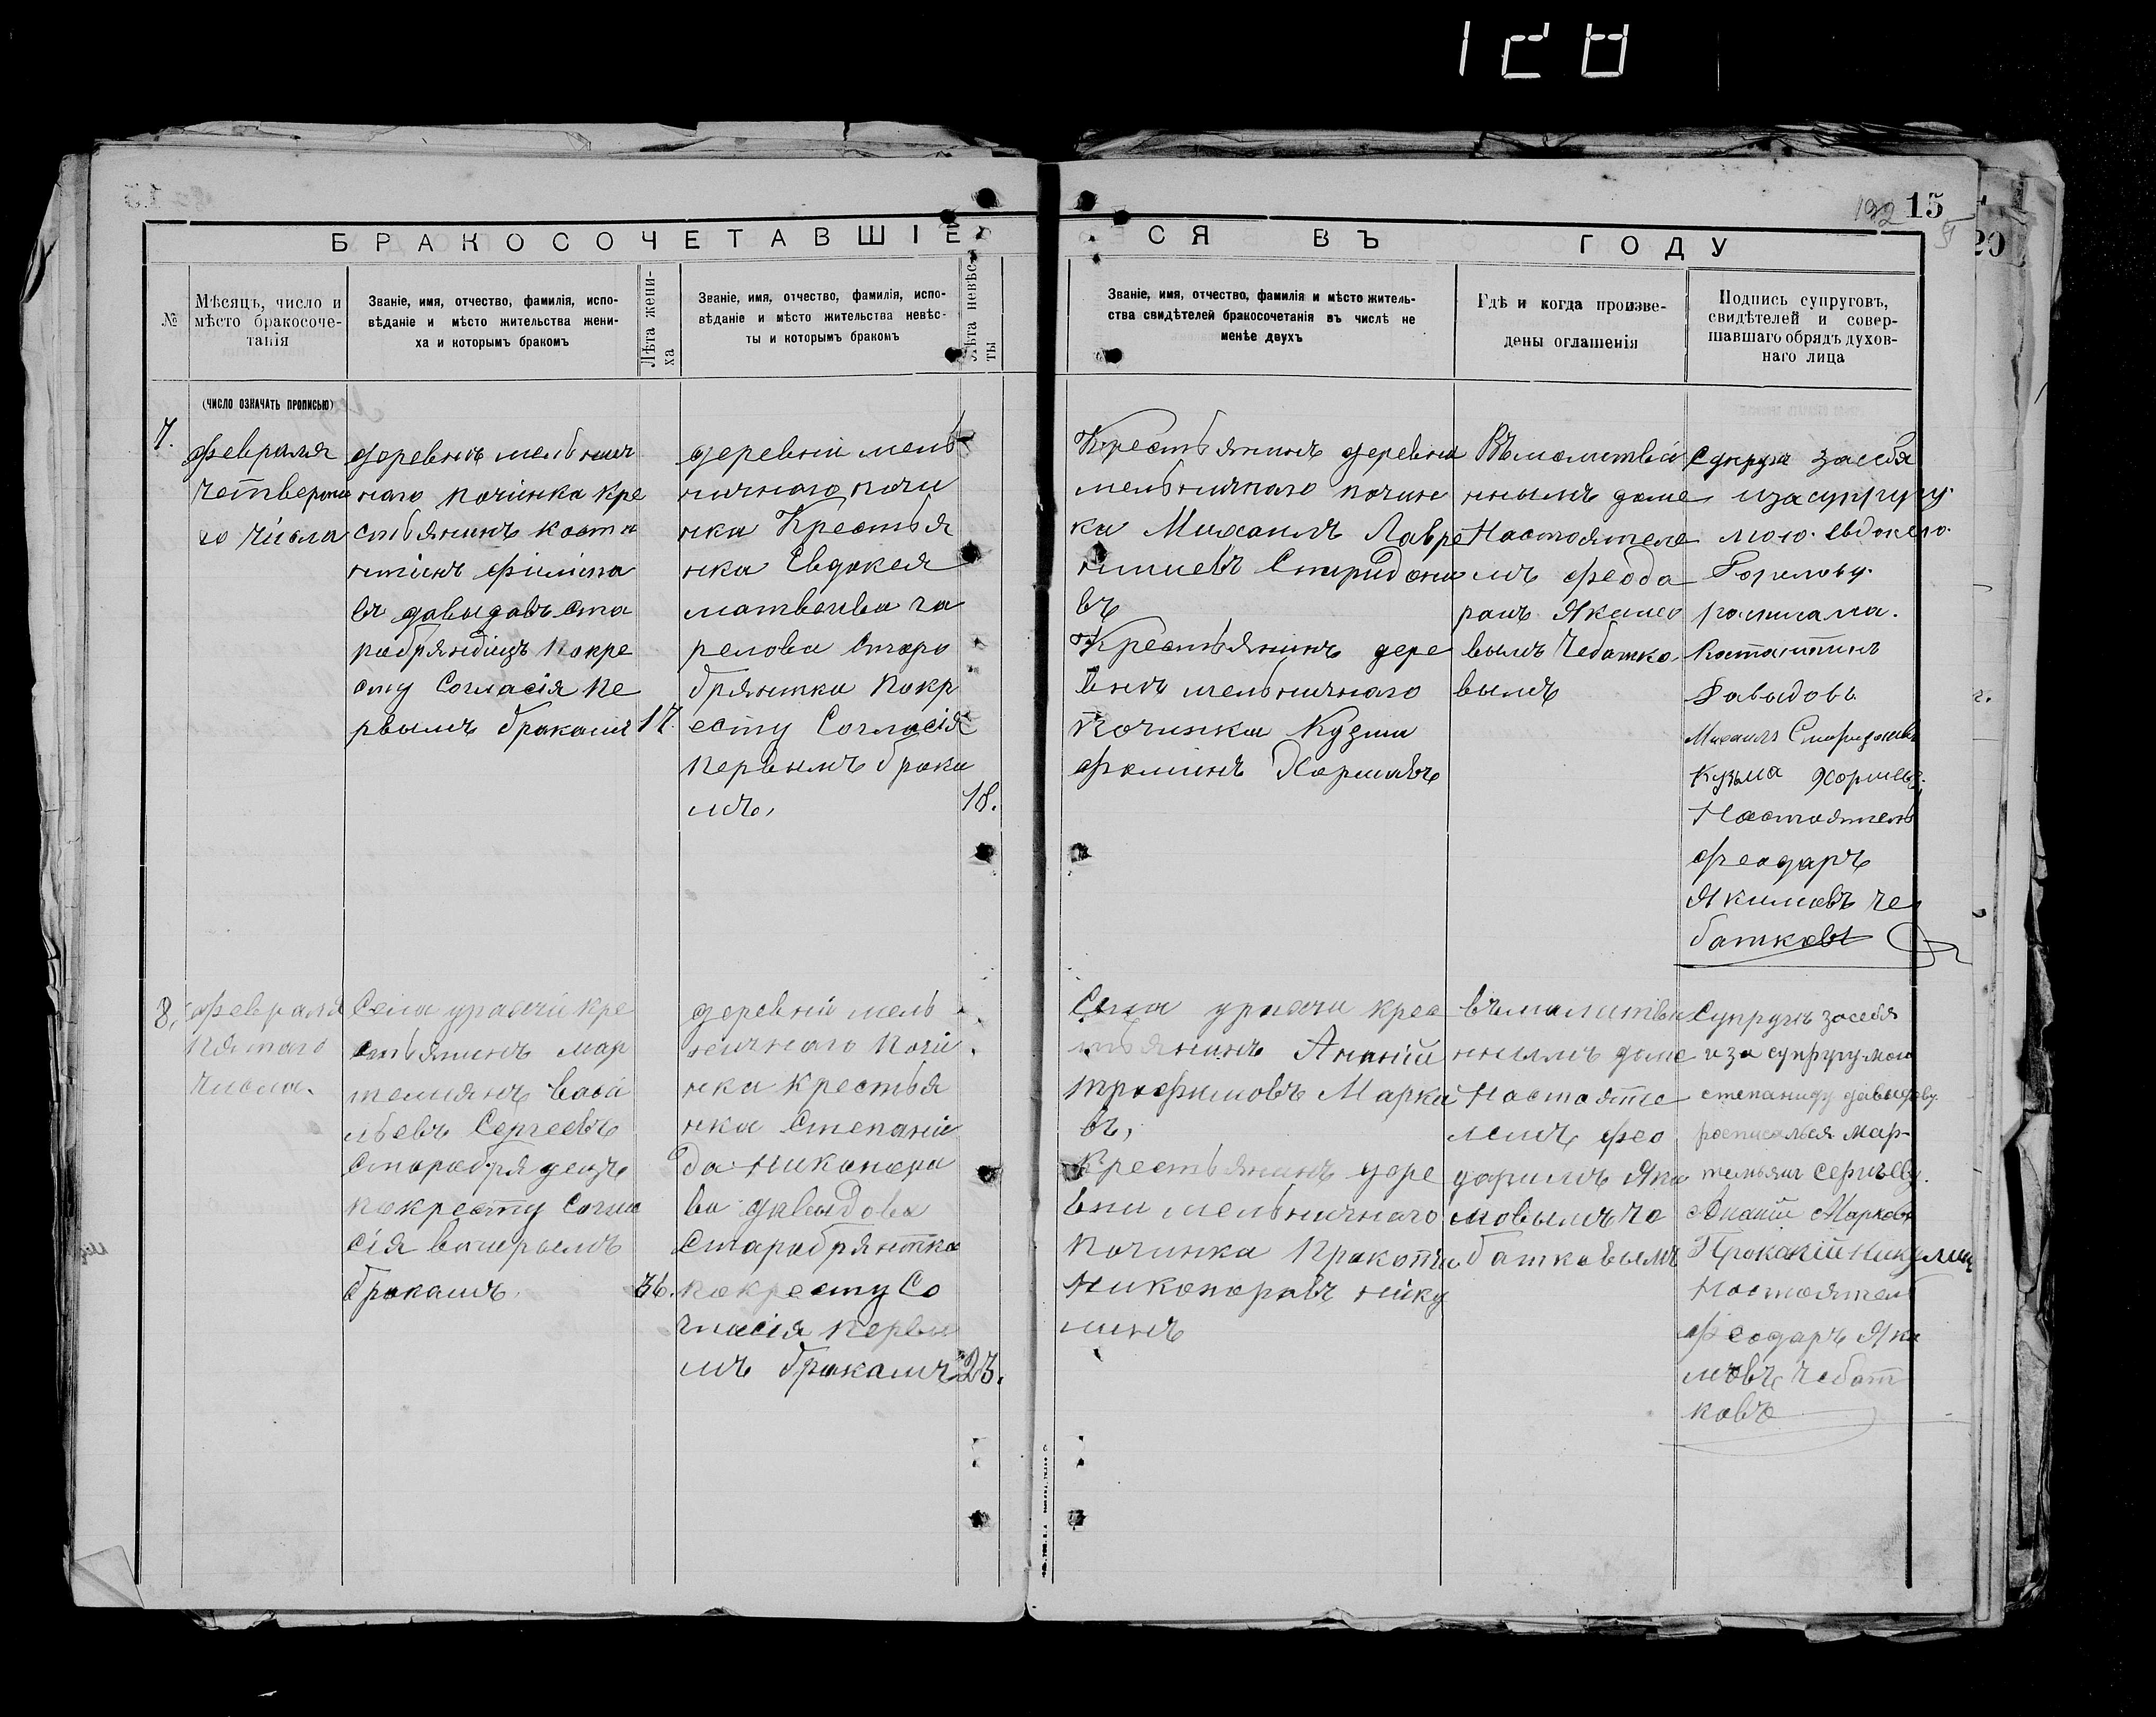 128
192 15
20
БРАКОСОЧЕТАВШІЕСЯ ВЪ ГОДУ
№
Мѣсяцъ, число и
мѣсто бракосоче-
танія
Званіе, имя, отчество, фамилія, испо-
вѣданіе и мѣсто жительства жени-
ха и которымъ бракомъ
Лѣта жени-
ха
Званіе, имя, отчество, фамилія, испо-
вѣданіе и мѣсто жительства невѣс-
ты и которымъ бракомъ
Лѣта невѣс-
ты
Званіе, имя, отчество, фамилія и мѣсто житель-
ства свидѣтелей бракосочетанія въ числѣ не
менѣе двухъ
Гдѣ и когда произве-
дены оглашенія
Подпись супруговъ,
свидѣтелей и совер-
шавшаго обрядъ духов-
наго лица
(ЧИСЛО ОЗНАЧАТЬ ПРОПИСЬЮ)
7.
Февраля
Четверта
го Числа
деревнъ мельнич
наго почінка Кре
стьянинъ Коста
нтинъ филипа
въ давыдавъ ста
рабряндіцъ Покре
сту Согласія Пе
рвымъ бракамъ
17.
деревніи мель
ничнаго почи
нка Крестья
нка Евдокея
матвеива га
релова Старо
брянтка Покр
есту Согласія
Первымъ брака
мъ,
18.
Крестьянинъ деревни
мельничнаго почин
ка Михаилъ Лавре
нтиевъ Спиридона
въ
Крестьянинъ дере
внъ мельничнаго
Починка Кузма
фоминъ Хармавъ
Въмолитвен
нымъ доме
Настоятеле
мъ феода
рамъ Якимо
вымъ Чебатко
вымъ
Супруга засебя
изасупругу
мою Евдокею
Горелову
росписала.
Костантинъ
Давыдовъ
Михаилъ Спиридоновъ
Кузьма Хормевъ
Настоятель
феодаръ
Якимовъ Че
батковъ
8.
Февраля
пятаго
числа.
Села урасчи кре
стьянинъ мар
темиянъ васи
льевъ Сергеевъ
Старобрядецъ
покресту Согла
сія вторымъ
бракамъ.
36.
деревніи мель
ничнаго Почи
нка крестья
нка Степани
да никанора
ва давыдова
Старобрянтка
покресту Со
гласія первы
мъ бракамъ
23.
Села урасчи крес
тьянинъ Ананіи
трофимовъ Марка
въ,
Крестьянинъ дере
вни мельничнаго
Починка Пракопи
Никоноравъ нику
линъ
въмалитве
ннымъ доме
Настояте
лемъ фео
дарамъ Яки
мовымъ че
батковымъ
Супругъ засебя
и за супругу мою
степаниду давыдову
росписался мар-
темьянъ сергъевъ.
Ананій Марковъ
Прокопій Никулин
Настоятель
феодаръ Яки
мовъ Чебат
ковъ